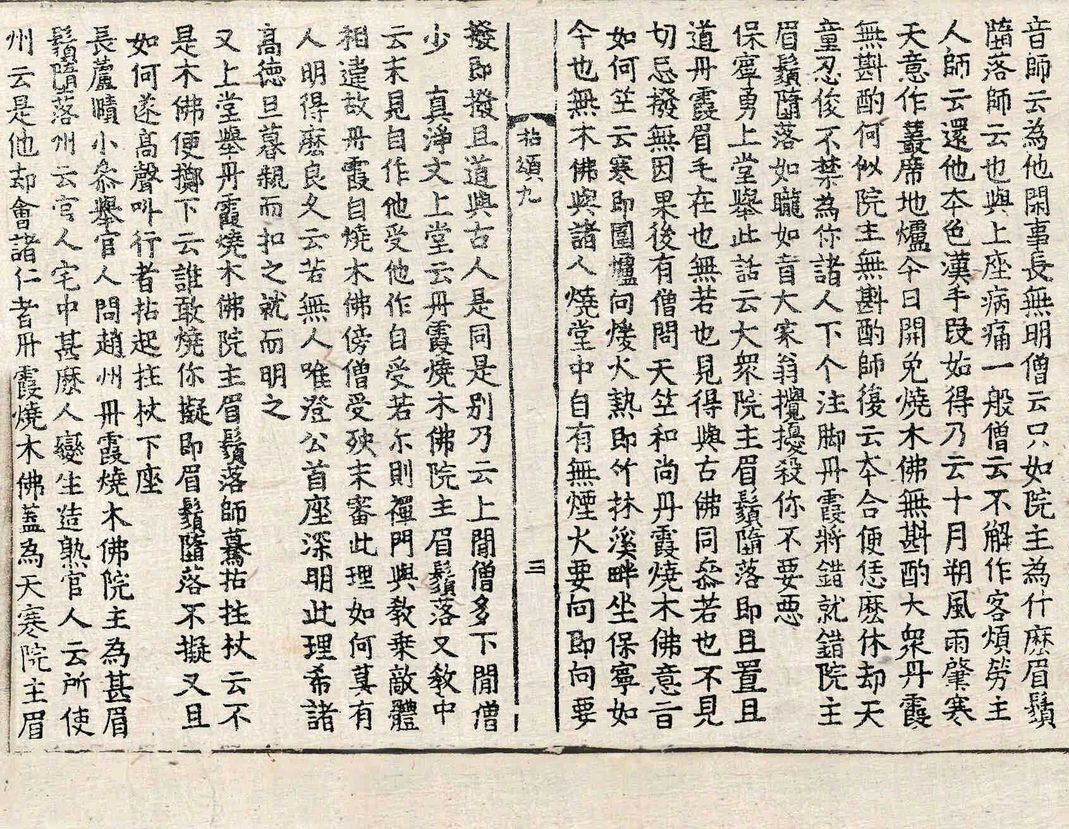 音師云為他閑事長無明僧云只如院主為什麽眉鬚
墮落師云也與上座病痛一般僧云不解作客煩勞主
人師云還他本色漢手段始得乃云十月朔風雨肇寒
天意作叢席地爐今日開免燒木佛無斟酌大衆丹霞
無斟酌何似院主無斟酌師後云本合便恁麽休去却天
童忍俊不禁為你諸人下个注脚丹霞將錯就錯院主
眉鬚墮落如矓如盲大家翁攪擾殺你不要惡
保寧勇上堂舉此話云大衆院主眉鬚墮落即且置且
道丹霞眉毛在也無若也見得與古佛同叅若也不見
切忌撥無因果後有僧問天竺和尚丹霞燒木佛意旨
如何竺云寒即圍爐向煖火熱即竹林溪畔坐保寧如
今也無木佛與諸人燒堂中自有無煙火要向即向要
拈頌九
三
撥即撥且道與古人是同是別乃云上間僧多下間僧
少　真淨文上堂云丹霞燒木佛院主眉鬚落又敎中
云未見自作他受他作自受若尔則禪門與敎乗敵體
相違故丹霞自燒木佛傍僧受殃未審此理如何莫有
人明得麽良久云若無人唯澄公首座深明此理希諸
高德旦暮親而扣之就而明之
又上堂舉丹霞燒木佛院主眉鬚落師驀拈拄杖云不
是木佛便擲下云誰敢燒你擬即眉鬚墮落不擬又且
如何遂高聲叫行者拈起拄杖下座
長蘆賾小叅舉官人問趙州丹霞燒木佛院主為甚眉
鬚墮落州云官人宅中甚麽人變生造熟官人云所使
州云是他却會諸仁者丹霞燒木佛蓋為天寒院主眉